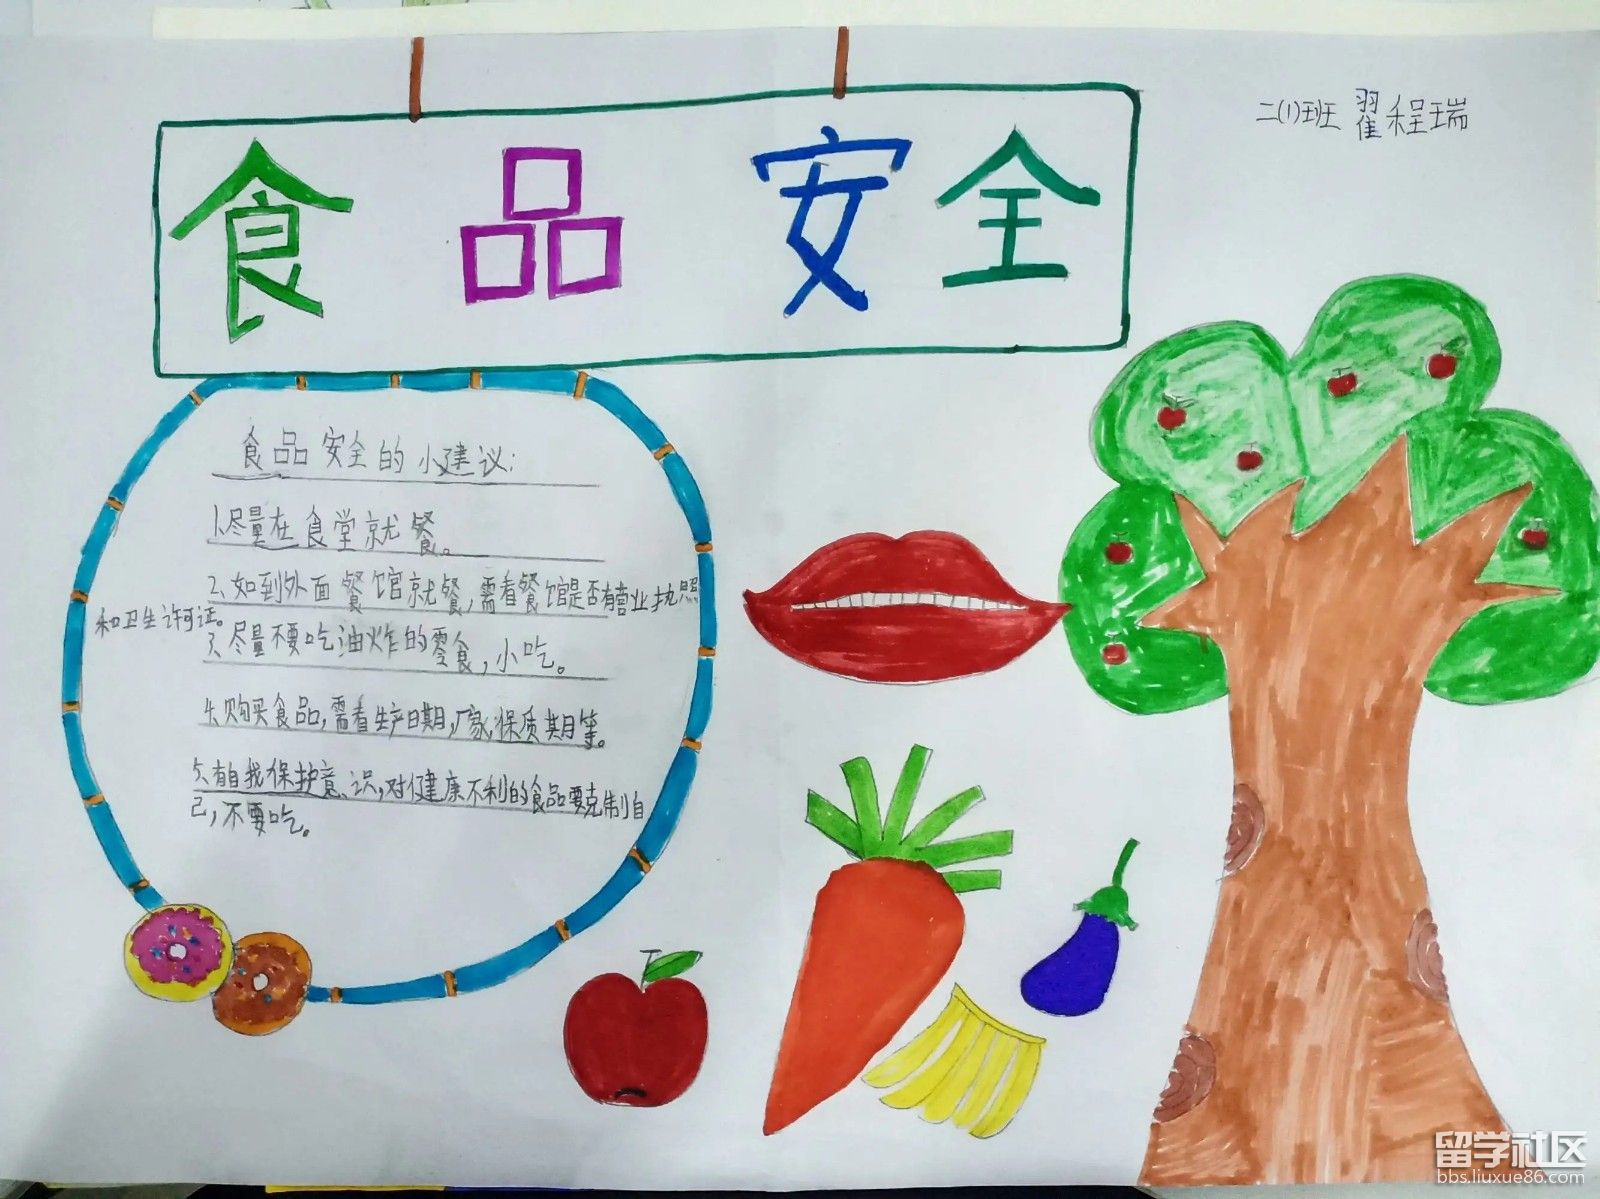 二(1)班 翟程瑞
食品安全
食品安全的小建议:
1.尽量在食堂就餐。
2、如到外面餐馆就餐,需看餐馆是否有营业执照
和卫生许可证。
3、尽量不要吃油炸的零食,小吃。
4、购买食品,需看生产日期,厂家,保质期等。
5、有自我保护意识,对健康不利的食品要克制自
己,不要吃。
留学社区
bbs.liuxue86.com